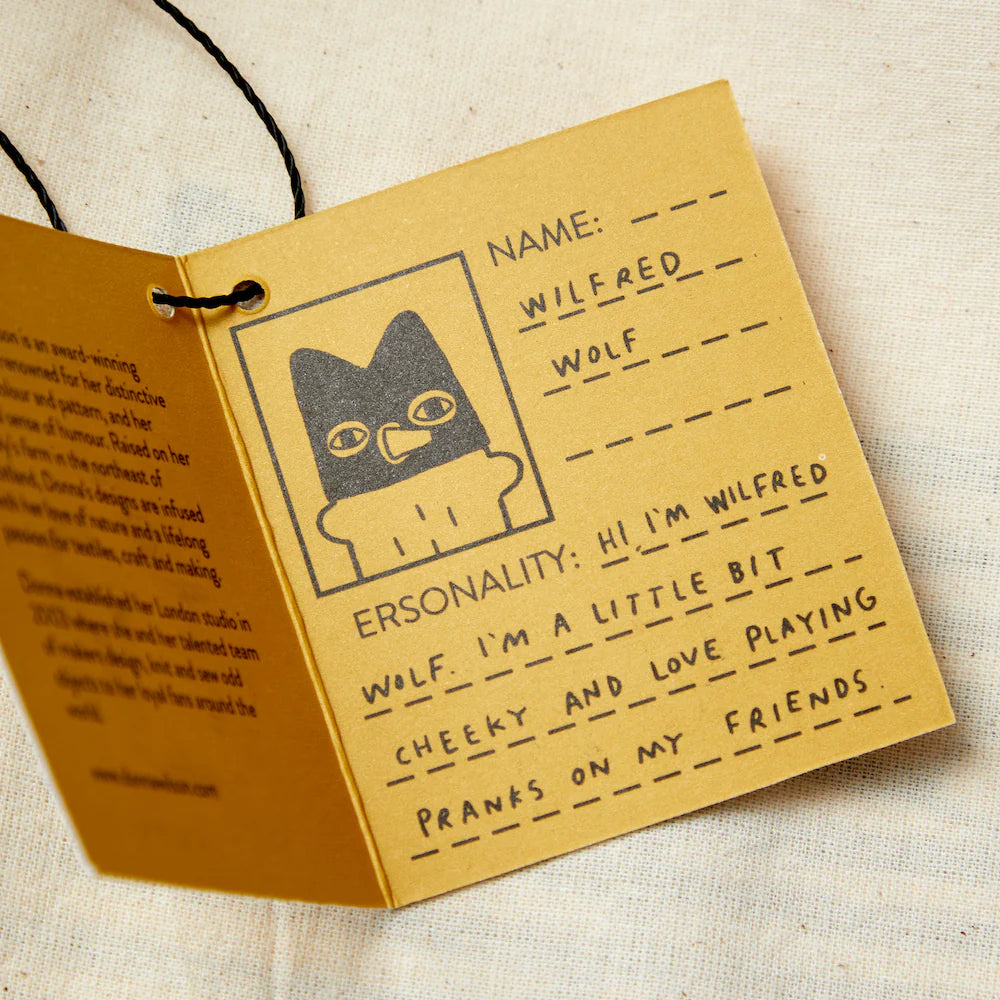 on is an award-winning
renowned for her distinctive
olour and pattern, and her
sense of humour. Raised on her
y's farm in the northeast of
tland, Donna's designs are infused
with her love of nature and a lifelong
passion for textiles, craft and making.
Donna established her London studio in
2003 where she and her talented team
of makers design, knit and sew odd
objects to her loyal fans around the
world.
www.donnawilson.com
NAME:
WILFRED
WOLF
ERSONALITY: HI, I'M WILFRED
WOLF. I'M A LITTLE BIT
CHEEKY AND LOVE PLAYING
PRANKS ON MY FRIENDS.